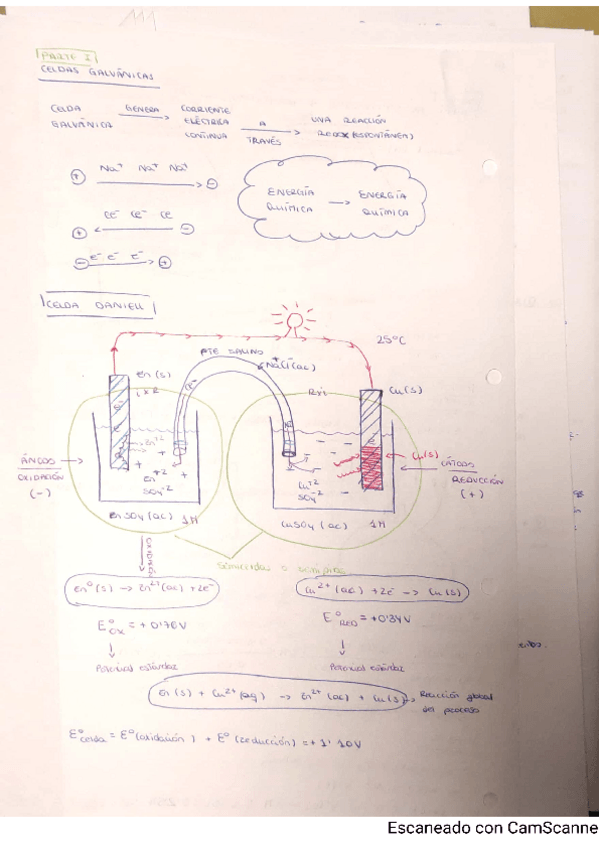 PARTE I
CELDAS GALVÁNICAS
CELDA GALVÁNICA GENERA CORRIENTE ELÉCTRICA CONTINUA A TRAVÉS UNA REACCIÓN REDOX (ESPONTÁNEA)
+ Na+ Na+ Na+ -
Cl- Cl- Cl
+ -
- e- e- e- +
ENERGÍA QUÍMICA → ENERGÍA QUÍMICA
CELDA DANIELL
25°C
PTE SALINO
Na+Cl-(ac)
Zn(s)
Cu(s)
Cl-
Zn+2
Cu(s)
ÁNODO
OXIDACIÓN
(-)
CÁTODO
REDUCCIÓN
(+)
Zn+2
SO4-2
Cu+2
SO4-2
ZnSO4(ac) 1M
CuSO4(ac) 1M
Semiceldas o
Zn°(s) → Zn2+(ac) + 2e-
Cu2+(ac) + 2e- → Cu(s)
E°ox = +0'76V
E°RED = +0'34V
Potencial estándar
Potencial estándar
Zn(s) + Cu2+(aq) → Zn2+(ac) + Cu(s) → Reacción global del proceso
E°celda = E°(oxidación) + E°(reducción) = +1'10V
Escaneado con CamScanne